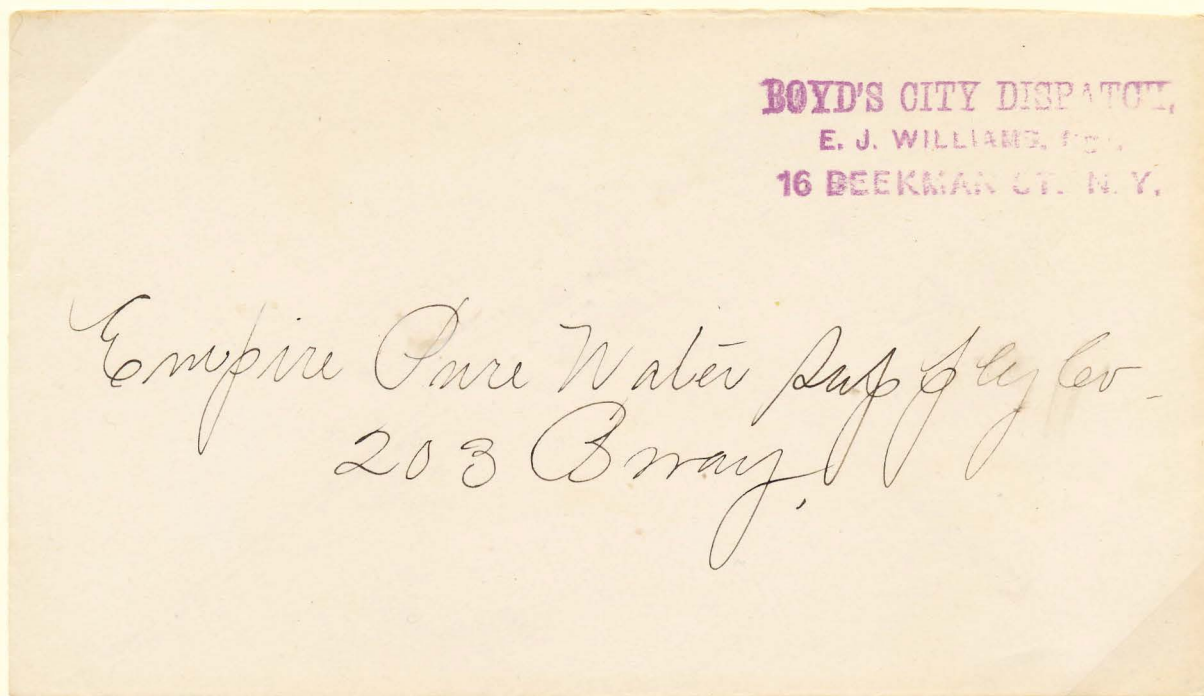 BOYD'S CITY DISPATCH,
E. J. WILLIAMS,
16 BEEKMAN ST. N. Y.
Empire Pure Water Supply Co
203 Bway,